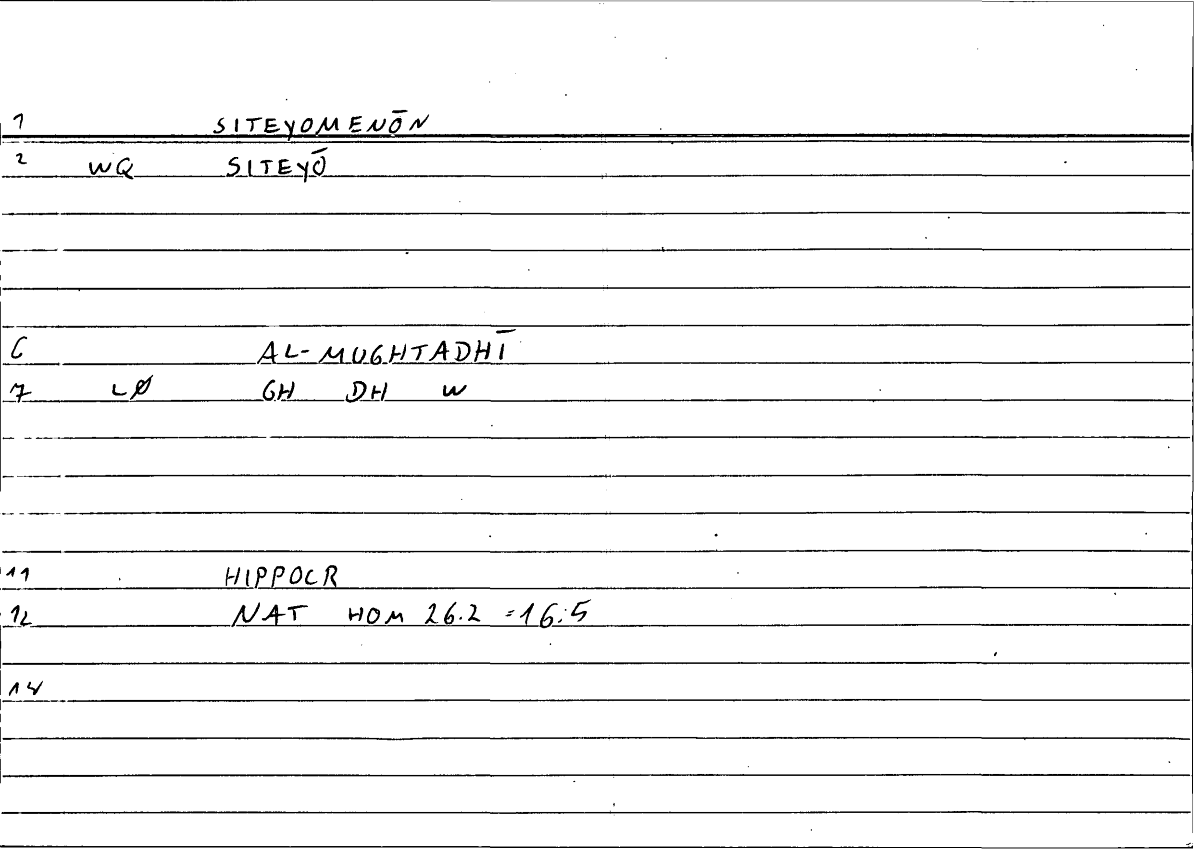 1 SITEYOMENŌN
2 WQ SITEYŌ
6 AL-MUGHTADHĪ
7 LØ GH DH W
11 HIPPOCR
12 NAT HOM 26.2 =16.5
14